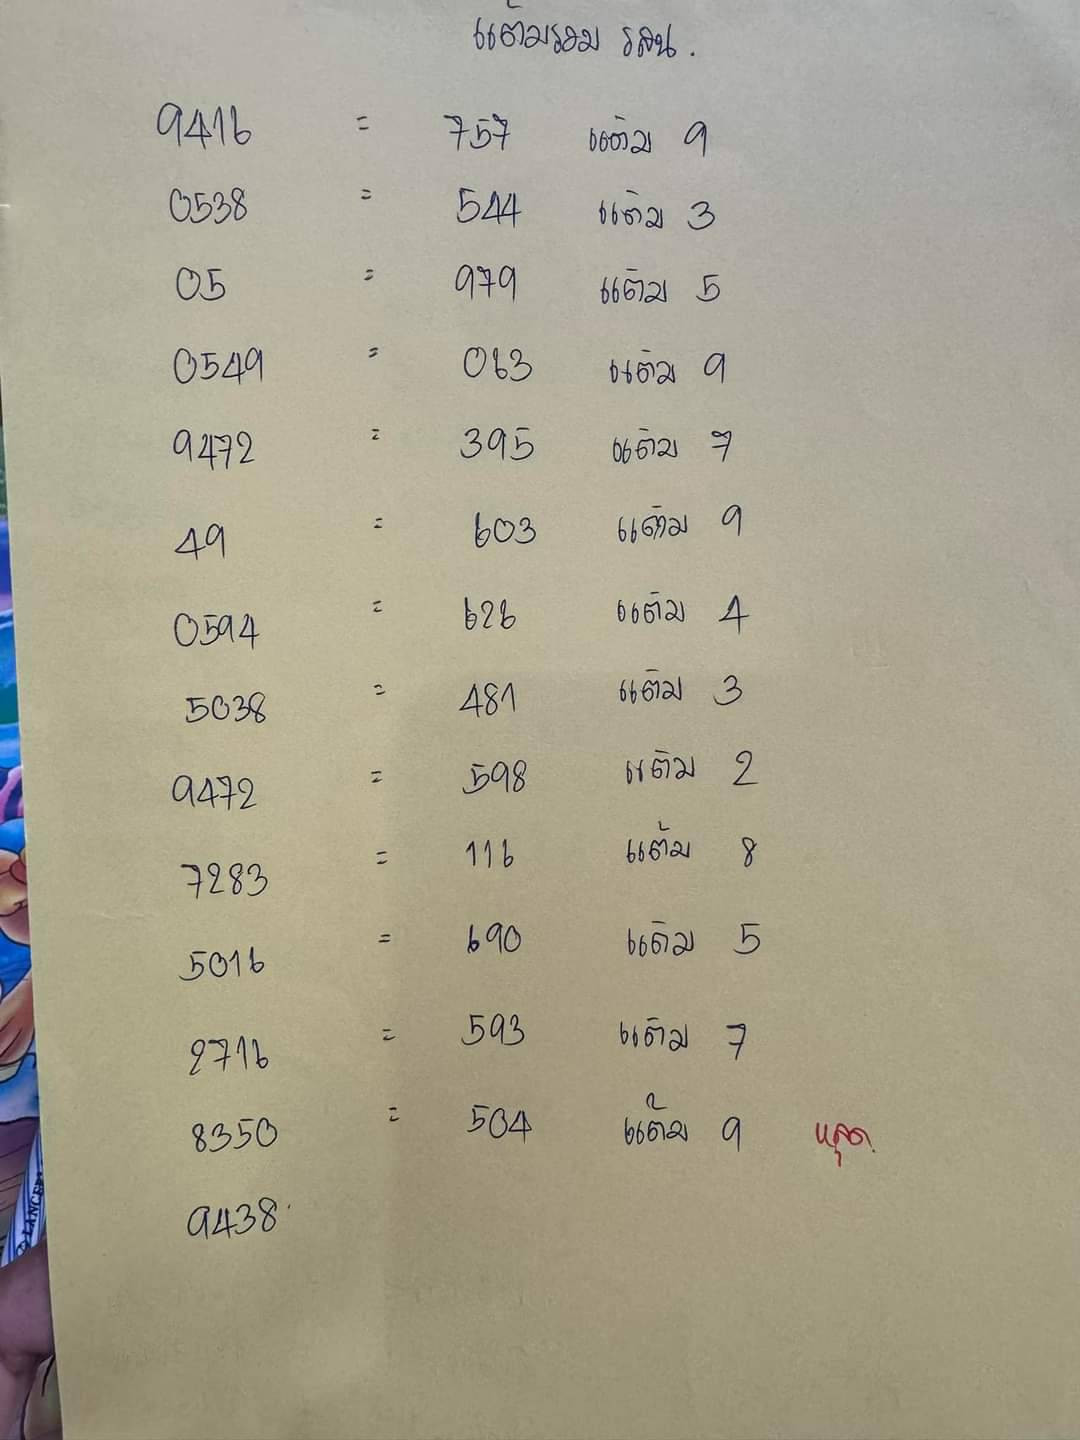 แต้มรวม รลน.
9416 = 757 แต้ม 9
0538 = 544 แต้ม 3
05 = 979 แต้ม 5
0549 = 063 แต้ม 9
9472 = 395 แต้ม 7
49 = 603 แต้ม 9
0594 = 626 แต้ม 4
5038 = 481 แต้ม 3
9472 = 598 แต้ม 2
7283 = 116 แต้ม 8
5016 = 690 แต้ม 5
2716 = 593 แต้ม 7
8350 = 504 แต้ม 9 หลุด.
9438